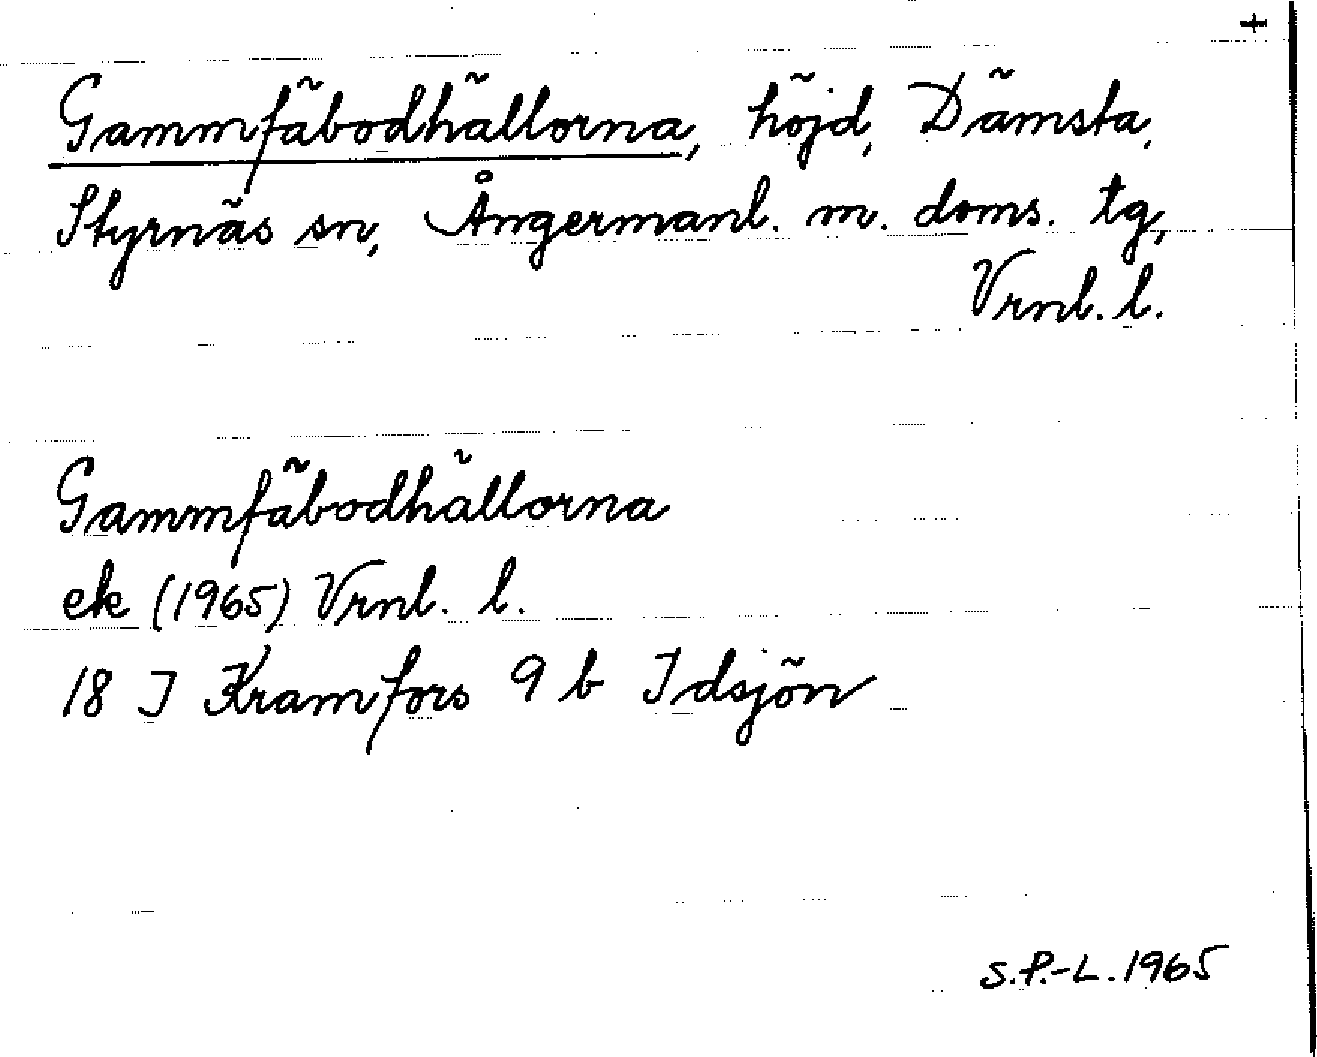 +
Gammfäbodhällorna, höjd, Dämsta,
Styrnäs sn, Ångermanl. m. doms. tg,
Vrnl. l.
Gammfäbodhällorna
ek (1965) Vrnl. l.
18 I Kramfors 9 b Idsjön
S.P.-L. 1965